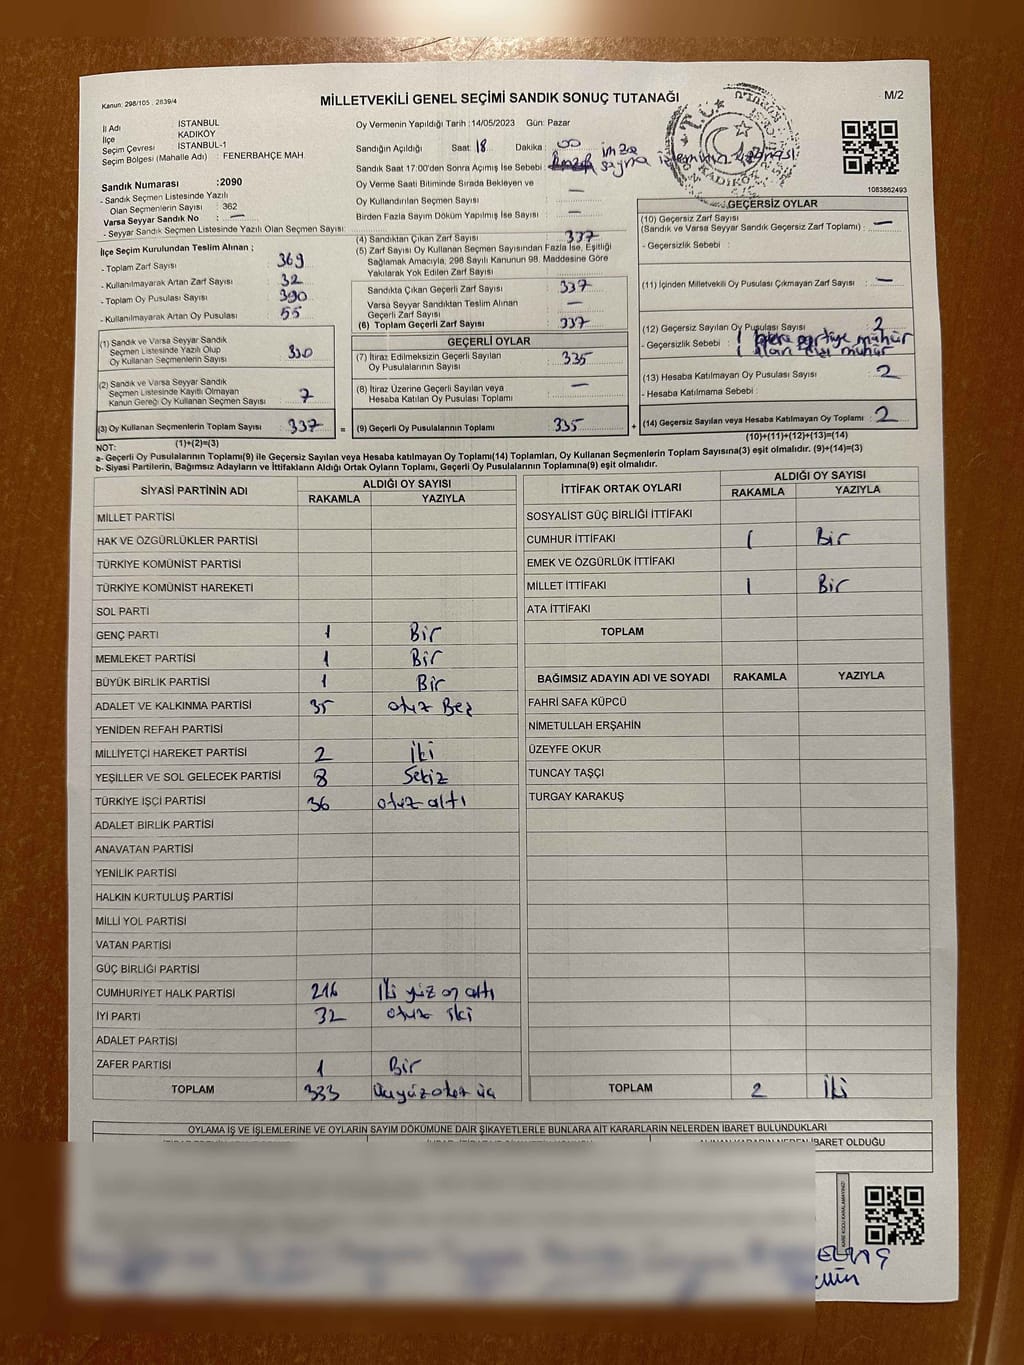 Kanun: 298/105 , 2839/4
MİLLETVEKİLİ GENEL SEÇİMİ SANDIK SONUÇ TUTANAĞI
M/2
İl Adı : İSTANBUL
İlçe : KADIKÖY
Seçim Çevresi : İSTANBUL-1
Seçim Bölgesi (Mahalle Adı) : FENERBAHÇE MAH.
Sandık Numarası :2090
- Sandık Seçmen Listesinde Yazılı
Olan Seçmenlerin Sayısı : 362
Varsa Seyyar Sandık No : —
- Seyyar Sandık Seçmen Listesinde Yazılı Olan Seçmen Sayısı:
Oy Vermenin Yapıldığı Tarih :14/05/2023 Gün: Pazar
Sandığın Açıldığı Saat: 18 Dakika : 00
Sandık Saat 17:00'den Sonra Açımış İse Sebebi : imza sayma
Oy Verme Saati Bitiminde Sırada Bekleyen ve
Oy Kullandırılan Seçmen Sayısı : —
Birden Fazla Sayım Döküm Yapılmış İse Sayısı : —
T.C.
KADIKÖY
1083862493
İlçe Seçim Kurulundan Teslim Alınan ;
- Toplam Zarf Sayısı : 369
- Kullanılmayarak Artan Zarf Sayısı : 32
- Toplam Oy Pusulası Sayısı : 390
- Kullanılmayarak Artan Oy Pusulası : 55
(1) Sandık ve Varsa Seyyar Sandık
Seçmen Listesinde Yazılı Olup
Oy Kullanan Seçmenlerin Sayısı : 330
(2) Sandık ve Varsa Seyyar Sandık
Seçmen Listesinde Kayıtlı Olmayan
Kanun Gereği Oy Kullanan Seçmen Sayısı : 7
(3) Oy Kullanan Seçmenlerin Toplam Sayısı : 337
(1)+(2)=(3)
(4) Sandıktan Çıkan Zarf Sayısı : 337
(5) Zarf Sayısı Oy Kullanan Seçmen Sayısından Fazla İse, Eşitliği
Sağlamak Amacıyla, 298 Sayılı Kanunun 98. Maddesine Göre
Yakılarak Yok Edilen Zarf Sayısı :
Sandıkta Çıkan Geçerli Zarf Sayısı : 337
Varsa Seyyar Sandıktan Teslim Alınan
Geçerli Zarf Sayısı : —
(6) Toplam Geçerli Zarf Sayısı : 337
GEÇERLİ OYLAR
(7) İtiraz Edilmeksizin Geçerli Sayılan
Oy Pusulalarının Sayısı : 335
(8) İtiraz Üzerine Geçerli Sayılan veya
Hesaba Katılan Oy Pusulası Toplamı : —
= (9) Geçerli Oy Pusulalarının Toplamı : 335
GEÇERSİZ OYLAR
(10) Geçersiz Zarf Sayısı
(Sandık ve Varsa Seyyar Sandık Geçersiz Zarf Toplamı) : —
- Geçersizlik Sebebi :
(11) İçinden Milletvekili Oy Pusulası Çıkmayan Zarf Sayısı : —
(12) Geçersiz Sayılan Oy Pusulası Sayısı : 2
- Geçersizlik Sebebi : 1 partiye mühür
1 mühür
(13) Hesaba Katılmayan Oy Pusulası Sayısı : 2
- Hesaba Katılmama Sebebi :
+ (14) Geçersiz Sayılan veya Hesaba Katılmayan Oy Toplamı : 2
(10)+(11)+(12)+(13)=(14)
NOT:
a- Geçerli Oy Pusulalarının Toplamı(9) ile Geçersiz Sayılan veya Hesaba katılmayan Oy Toplamı(14) Toplamları, Oy Kullanan Seçmenlerin Toplam Sayısına(3) eşit olmalıdır. (9)+(14)=(3)
b- Siyasi Partilerin, Bağımsız Adayların ve İttifakların Aldığı Ortak Oyların Toplamı, Geçerli Oy Pusulalarının Toplamına(9) eşit olmalıdır.
SİYASİ PARTİNİN ADI ALDIĞI OY SAYISI
RAKAMLA YAZIYLA
MİLLET PARTİSİ
HAK VE ÖZGÜRLÜKLER PARTİSİ
TÜRKİYE KOMÜNİST PARTİSİ
TÜRKİYE KOMÜNİST HAREKETİ
SOL PARTİ
GENÇ PARTİ 1 Bir
MEMLEKET PARTİSİ 1 Bir
BÜYÜK BİRLİK PARTİSİ 1 Bir
ADALET VE KALKINMA PARTİSİ 35 otuz Beş
YENİDEN REFAH PARTİSİ
MİLLİYETÇİ HAREKET PARTİSİ 2 İki
YEŞİLLER VE SOL GELECEK PARTİSİ 8 Sekiz
TÜRKİYE İŞÇİ PARTİSİ 36 otuz altı
ADALET BİRLİK PARTİSİ
ANAVATAN PARTİSİ
YENİLİK PARTİSİ
HALKIN KURTULUŞ PARTİSİ
MİLLİ YOL PARTİSİ
VATAN PARTİSİ
GÜÇ BİRLİĞİ PARTİSİ
CUMHURİYET HALK PARTİSİ 216 İki yüz on altı
İYİ PARTİ 32 otuz iki
ADALET PARTİSİ
ZAFER PARTİSİ 1 Bir
TOPLAM 333 Üçyüz otuz üç
İTTİFAK ORTAK OYLARI ALDIĞI OY SAYISI
RAKAMLA YAZIYLA
SOSYALİST GÜÇ BİRLİĞİ İTTİFAKI
CUMHUR İTTİFAKI 1 Bir
EMEK VE ÖZGÜRLÜK İTTİFAKI
MİLLET İTTİFAKI 1 Bir
ATA İTTİFAKI
TOPLAM
BAĞIMSIZ ADAYIN ADI VE SOYADI RAKAMLA YAZIYLA
FAHRİ SAFA KÜPCÜ
NİMETULLAH ERŞAHİN
ÜZEYFE OKUR
TUNCAY TAŞÇI
TURGAY KARAKUŞ
TOPLAM 2 İki
OYLAMA İŞ VE İŞLEMLERİNE VE OYLARIN SAYIM DÖKÜMÜNE DAİR ŞİKAYETLERLE BUNLARA AİT KARARLARIN NELERDEN İBARET BULUNDUKLARI
ALINAN KARARIN NEDEN İBARET OLDUĞU
KARE KODU KARALAMAYINIZ!